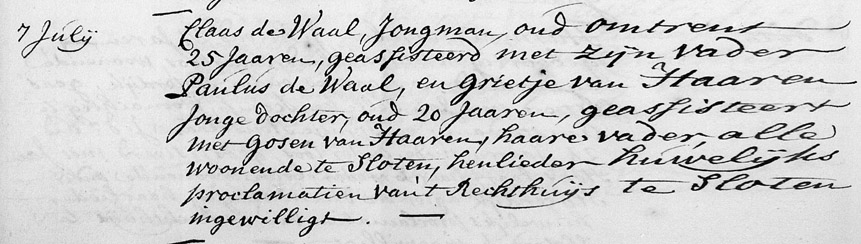 7 Julij Claas de Waal, Jongman, oud omtrent
25 Jaaren, geassisteerd met zijn vader
Paulus de Waal, en Grietje van Haaren
Jonge dochter, oud 20 Jaaren, geassisteert
met Gosen van Haaren, haare vader, alle
woonende te Sloten, henlieder huwelijks
proclamatien van't Rechthuijs te Sloten
ingewilligt. —